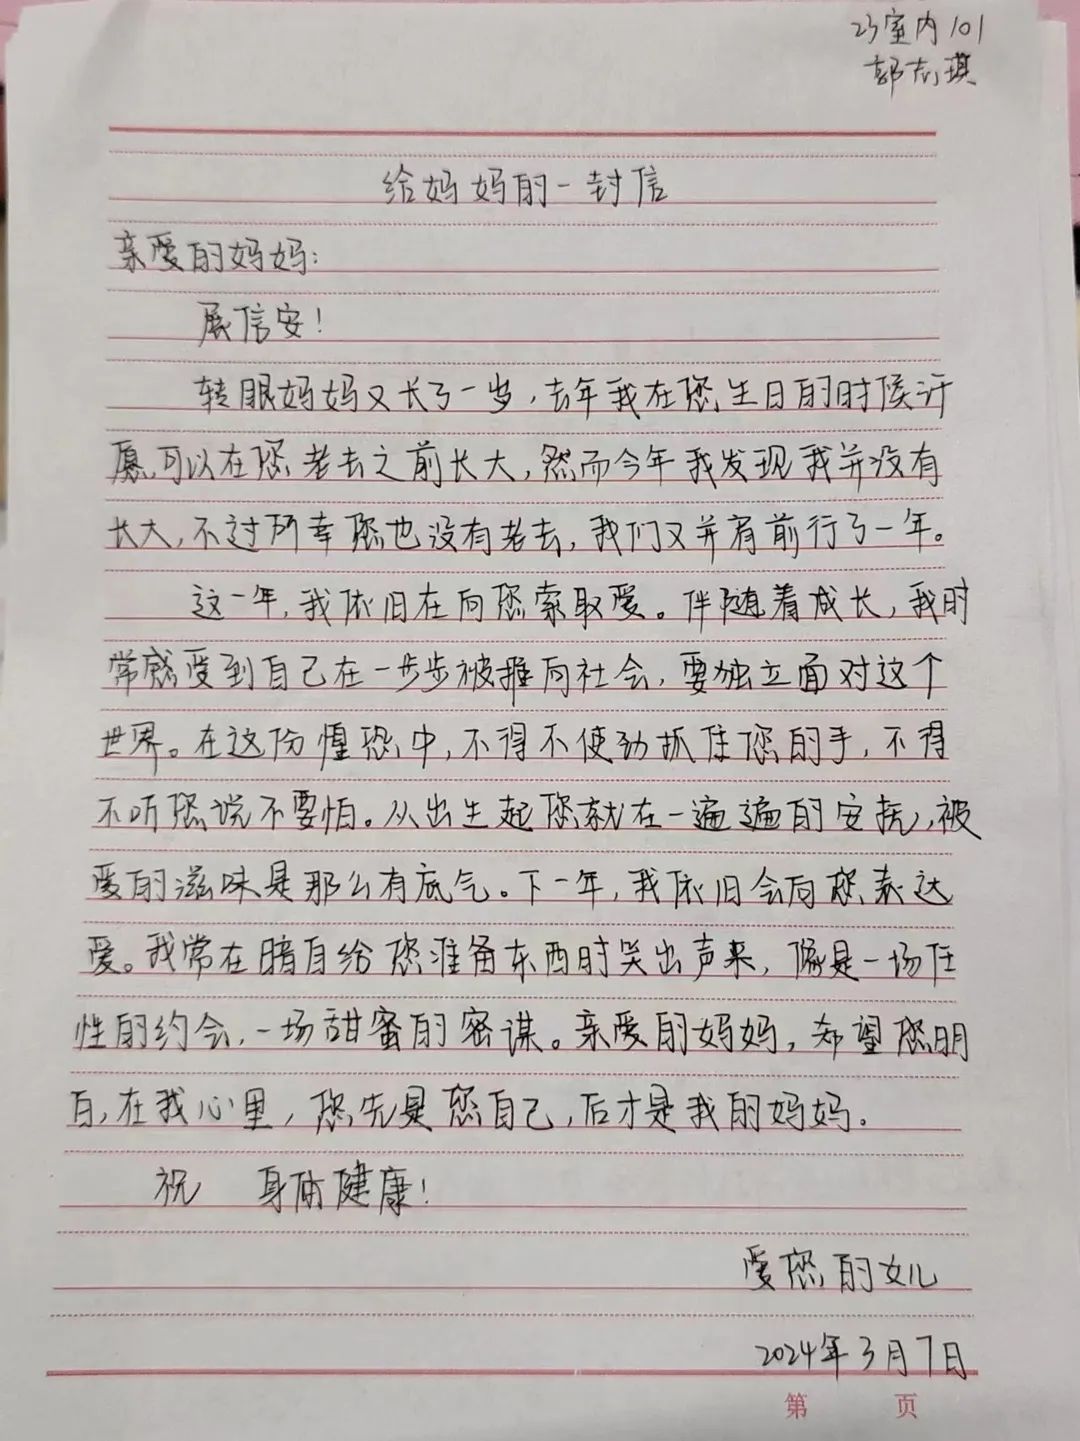 23室内101
郭志琪
给妈妈的一封信
亲爱的妈妈:
展信安!
转眼妈妈又长了一岁,去年我在您生日的时候许
愿,可以在您老去之前长大,然而今年我发现我并没有
长大,不过所幸您也没有老去,我们又并肩前行了一年。
这一年,我依旧在向您索取爱。伴随着成长,我时
常感受到自己在一步步被推向社会,要独立面对这个
世界。在这份惶恐中,不得不使劲抓住您的手,不得
不听您说不要怕。从出生起您就在一遍遍的安抚,被
爱的滋味是那么有底气。下一年,我依旧会向您表达
爱。我常在暗自给您准备东西时笑出声来,像是一场任
性的约会,一场甜蜜的密谋。亲爱的妈妈,希望您明
白,在我心里,您先是您自己,后才是我的妈妈。
祝 身体健康!
爱您的女儿
2024年3月7日
第 页